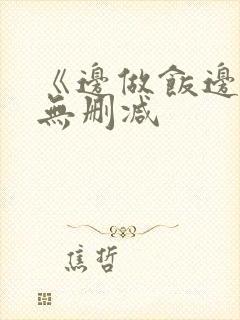 《邊做飯邊
無刪減
焦哲